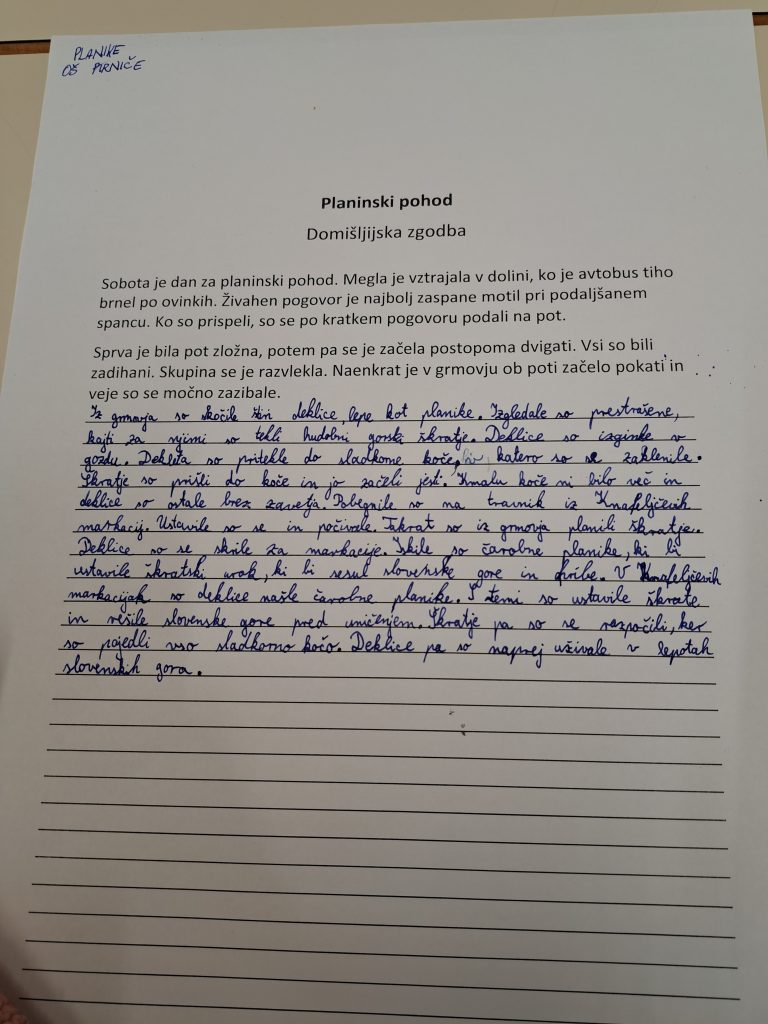 PLANIKE
OŠ PIRNIČE
Planinski pohod
Domišljijska zgodba
Sobota je dan za planinski pohod. Megla je vztrajala v dolini, ko je avtobus tiho
brnel po ovinkih. Živahen pogovor je najbolj zaspane motil pri podaljšanem
spancu. Ko so prispeli, so se po kratkem pogovoru podali na pot.
Sprva je bila pot zložna, potem pa se je začela postopoma dvigati. Vsi so bili
zadihani. Skupina se je razvlekla. Naenkrat je v grmovju ob poti začelo pokati in
veje so se močno zazibale.
Iz grmovja so skočile štiri deklice, lepe kot planike. Izgledale so prestrašene,
kajti za njimi so tekli hudobni gorski škratje. Deklice so izginile v
gozdu. Dekleta so pritekle do sladkorne koče, v katero so se zaklenile.
Škratje so prišli do koče in jo začeli jesti. Kmalu koče ni bilo več in
deklice so ostale brez zavetja. Pobegnile so na travnik iz Knafeljčevih
markacij. Ustavile so se in počivale. Takrat so iz grmovja planili škratje.
Deklice so se skrile za markacije. Iskile so čarobne planike, ki bi
ustavile škratski urok, ki bi sesul slovenske gore in hribe. V Knafeljčevih
markacijah so deklice našle čarobne planike. S temi so ustavile škrate
in rešile slovenske gore pred uničenjem. Škratje pa so se razpočili, ker
so pojedli vso sladkorno kočo. Deklice pa so naprej uživale v lepotah
slovenskih gora.